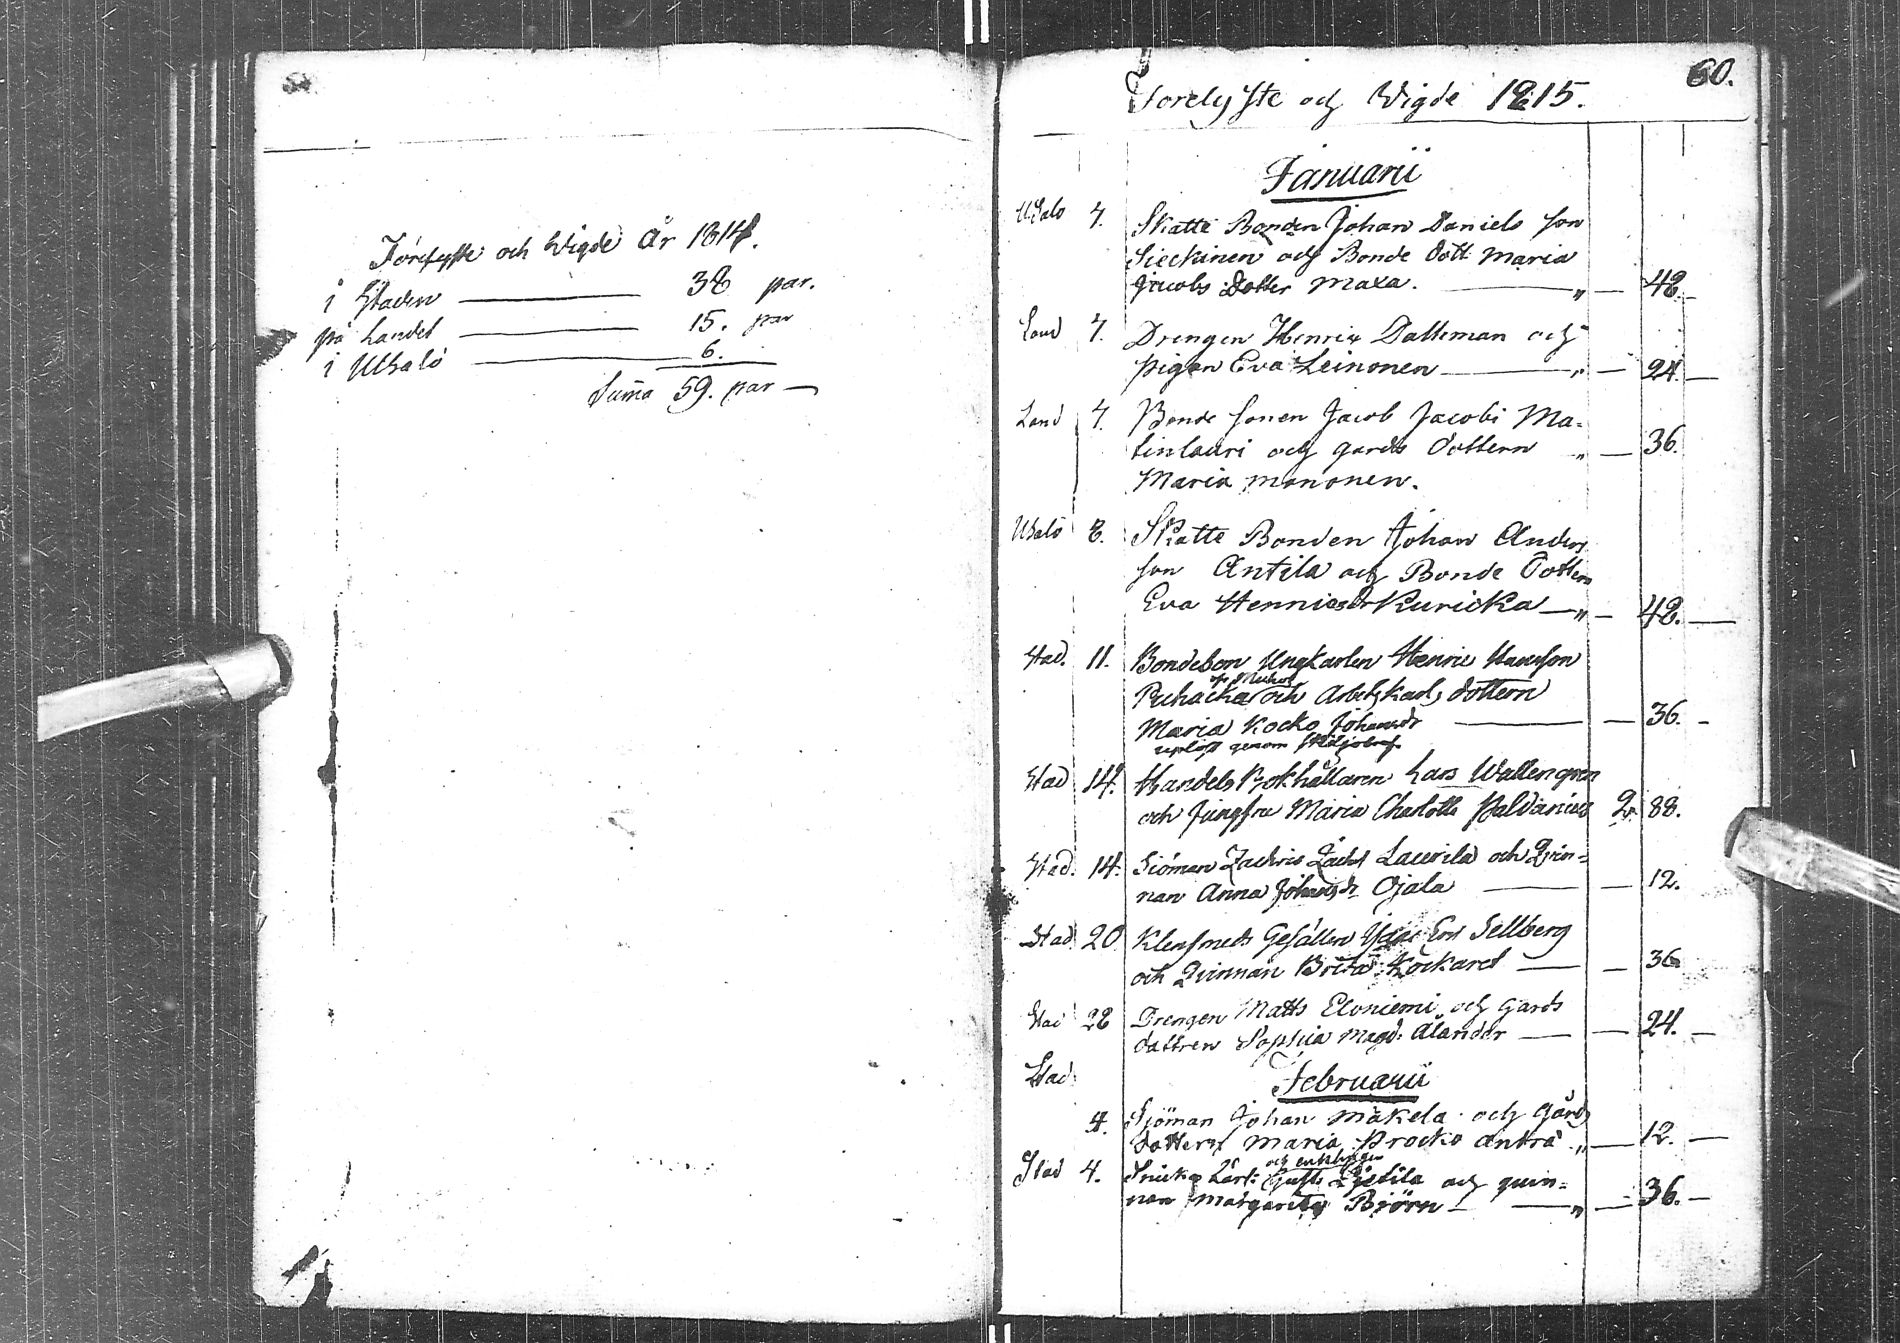 Förelyste och Wigde År 1814.
i Staden 38 par.
på Landet 15. par
i Uhalo 6.
Suma 59. par
60.
Forelyste och Wigde 1815.
Januarii
Uhalo 7. Skatte Bonden Johan Daniels son
Sieckinen och Bonde dott Maria
Jacobs dotter Maxa. " 48.
Land 7. Drengen Henrix Dalleman och
pigan Eva Leinonen " 24.
Land 7. Bonde Sonen Jacob Jacobi Ma-
tinlauri och gards dottern " 36.
Maria Mononen.
Uhalo 8. Skatte Bonden Johan Anders
son Antila och Bonde Dottern
Eva Kuricka " 48.
Stad. 11. Bondeson Ungkarlen Henric
och Arbetskarls dottern
Maria Kocko Johansdr 36.
genom
Stad 14. Handels Bokhållaren Lars Wallengren
och Jungfru Maria Charlotta Paldanius 2. 88.
Stad. 14. Siöman Zachris Zachs Laurila och Qvin-
nan Anna Johansdr Ojala 12.
Stad 20 Klensmeds Gesällen Sellberg
och Qvinnan Brita 36
Stad 28 Drengen Matts Eloniemi och Gards
dattren Sophia Magd: Ålander 24.
Stad
Februarii
4. Sjöman Johan Mäkelä och Gårds
dottern Maria Brocko 12.
Stad 4. och enklingen
och qvin-
nan Margareta Björn " 36.